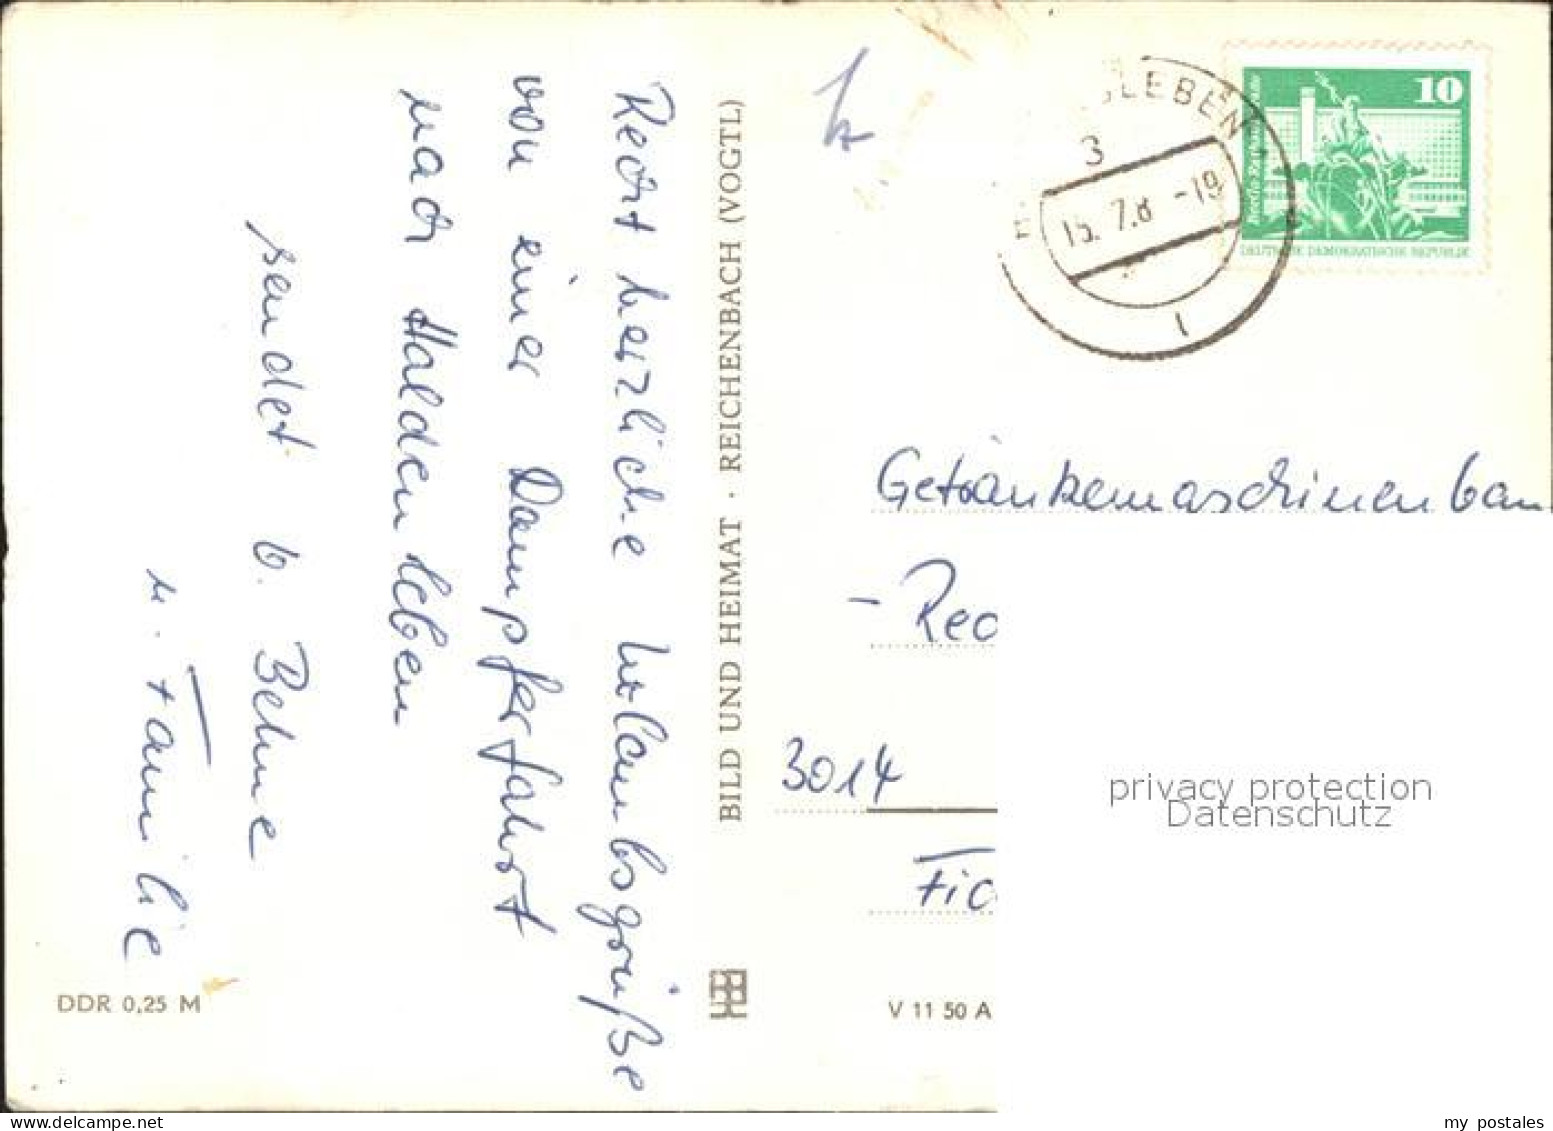 Recht herzliche Urlaubsgrüße
von einer Dampferfahrt
nach Haldensleben
sendet b. Behne
u. Familie
DDR 0,25 M
BILD UND HEIMAT · REICHENBACH (VOGTL)
V 11 50 A
SLEBEN
3
15. 7.8 -19
10
DEUTSCHE DEMOKRATISCHE REPUBLIK
Getränkemaschinenbau
- Red
3014
privacy protection
Datenschutz
my postales